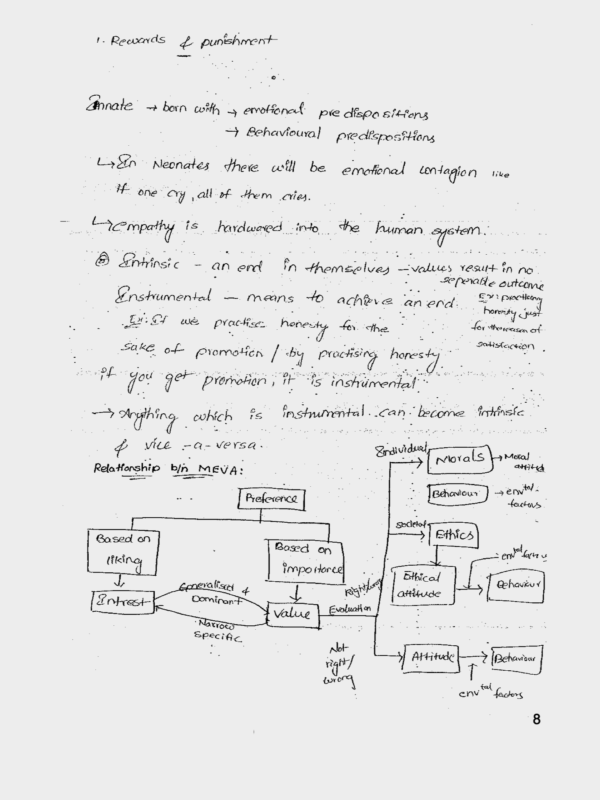 1. Rewards & punishment
Innate → born with → emotional predispositions
→ Behavioural predispositions
↳ In Neonates there will be emotional contagion like
If one cry, all of them cries.
↳ empathy is hardwored into the human system.
Intrinsic - an end in themselves - values result in no
seperable outcome
Instrumental - means to achieve an end.
Ex: practising
honesty just
for the reason of
satisfaction.
Ex: If we practise honesty for the
sake of promotion / by practising honesty
if you get promotion, it is instrumental
→ Anything which is instrumental can become intrinsic
& vice-a-versa.
Relationship b/n MEVA:
Preference
Based on
liking
Based on
importance
Intrest
Generalised &
Dominant
Narrow
Specific
Value
Right/wrong
Evaluation
Not
right/
wrong
Individual
Morals → Moral
attitude
Behaviour → envtal
factors
Societal
Ethics
Ethical
attitude
envtal
Behaviour
Attitude
Behaviour
envtal factors
8